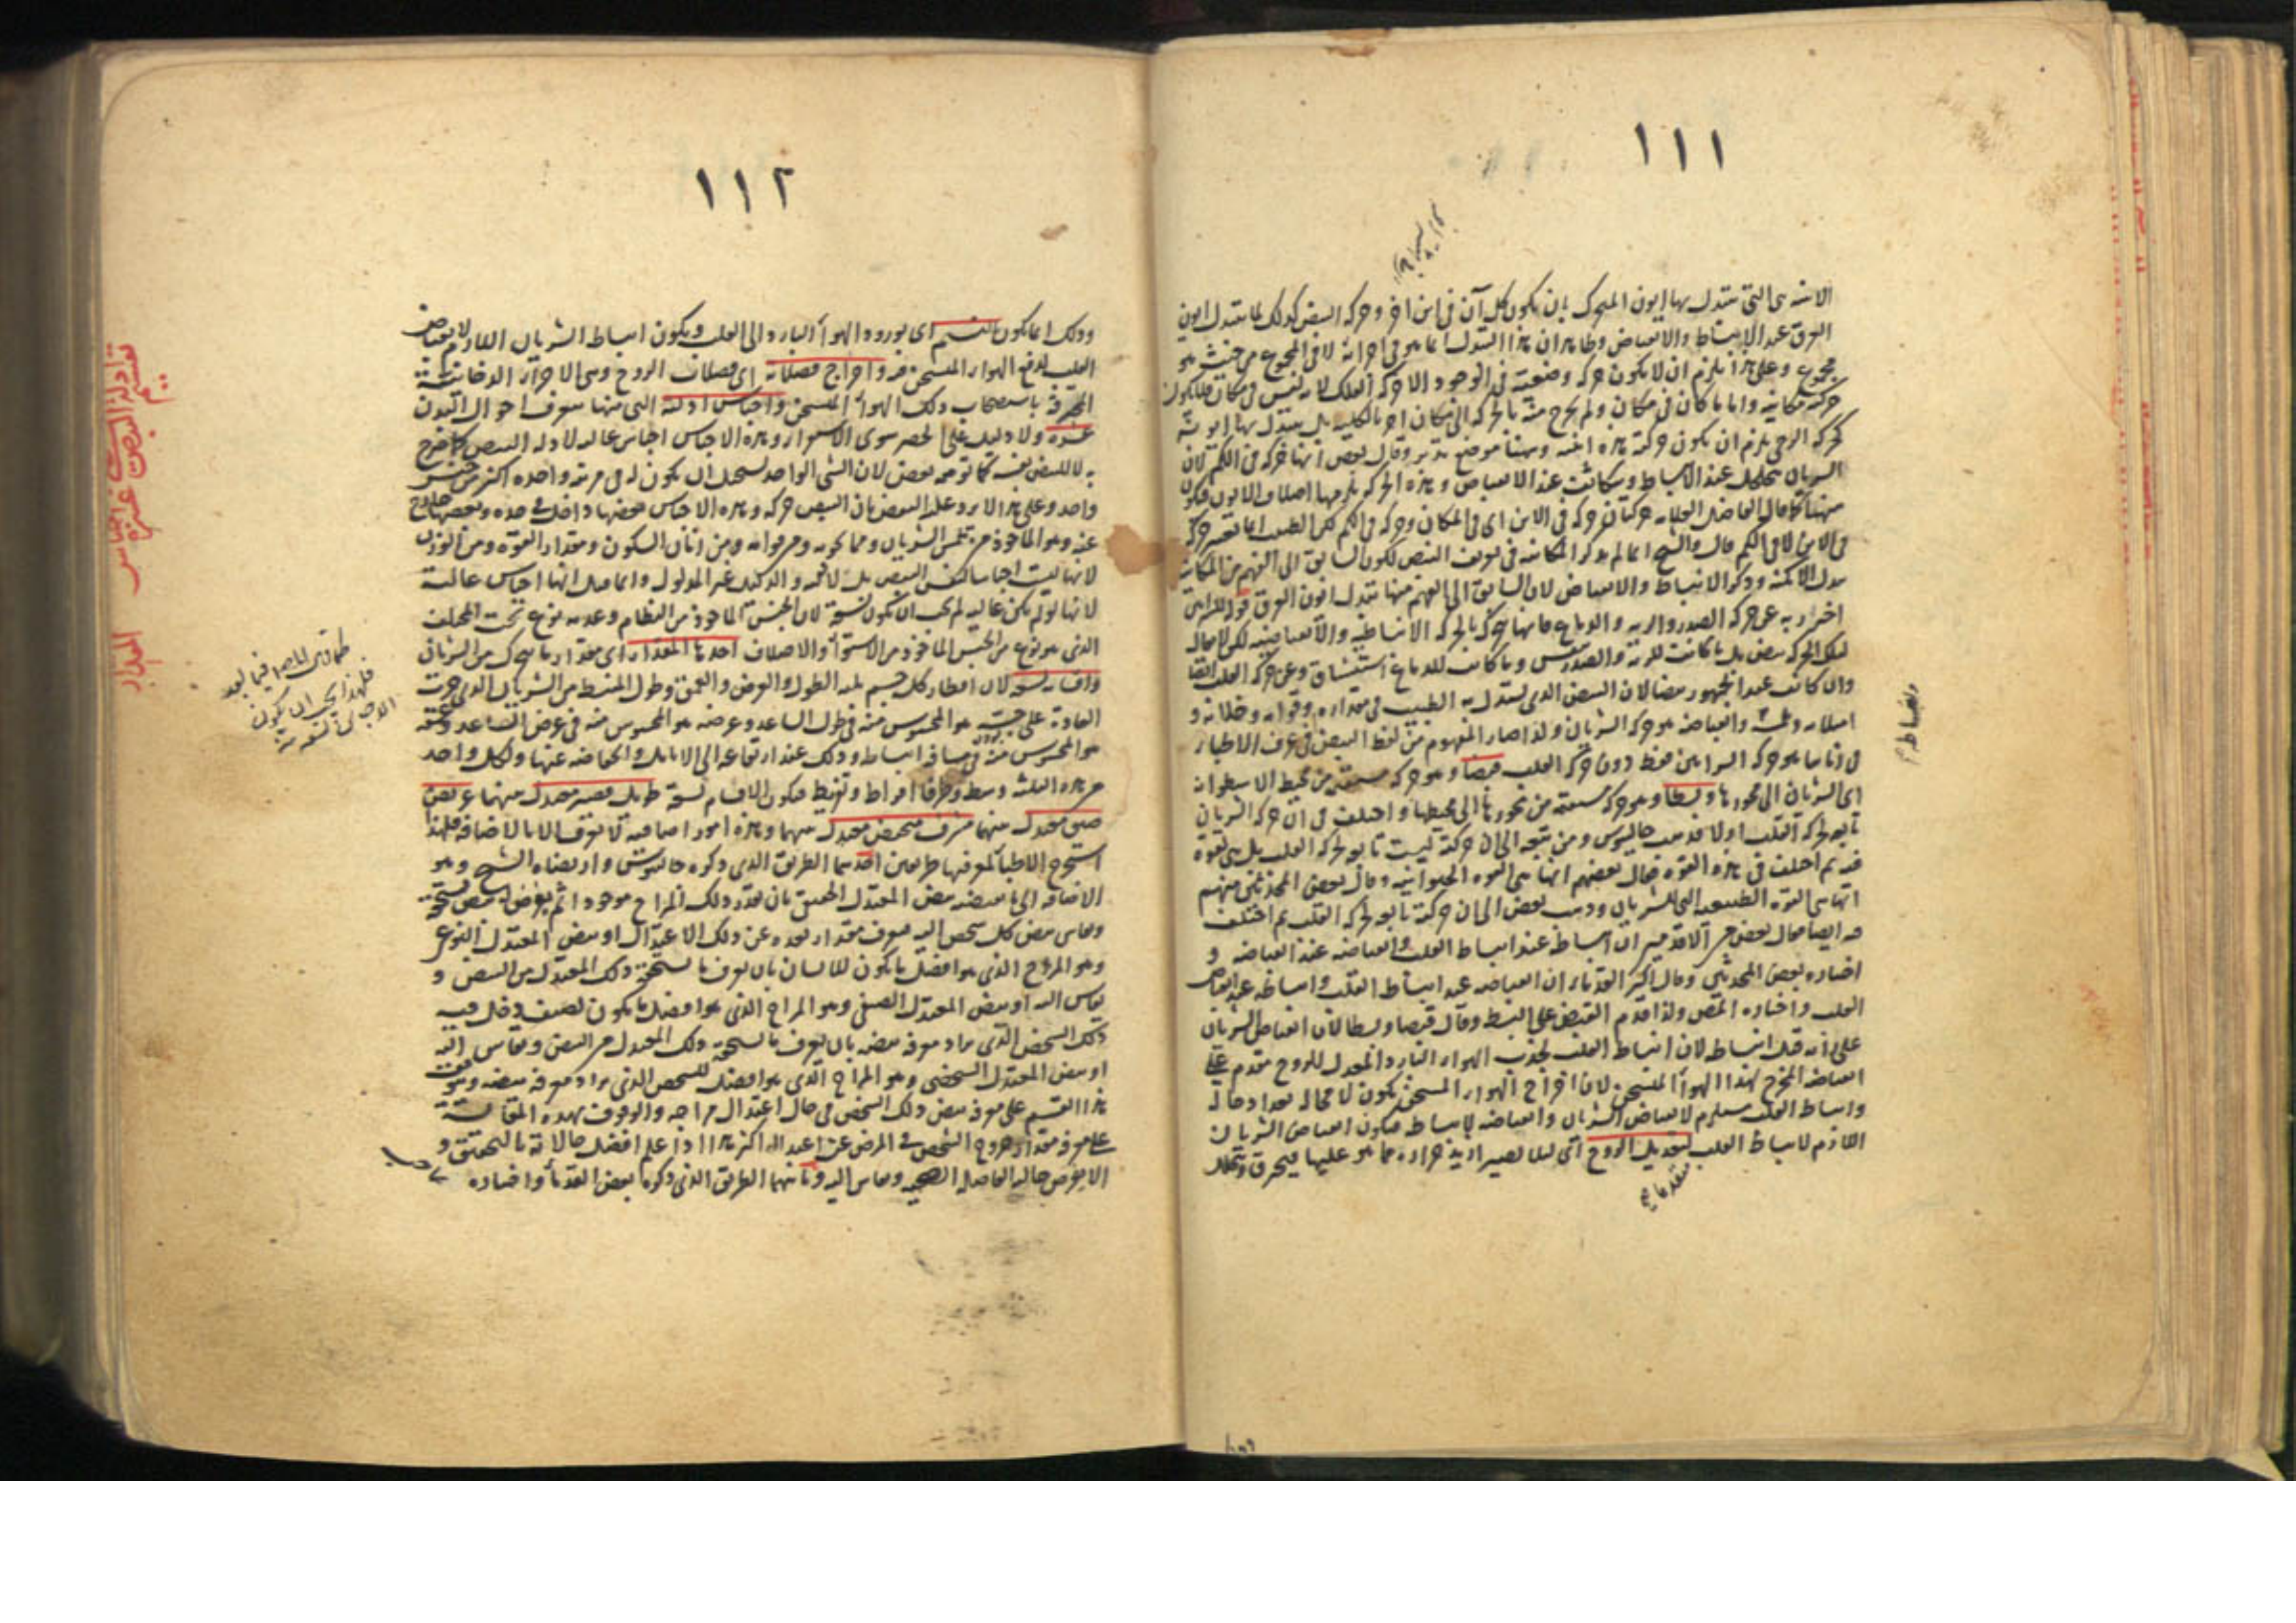 ١١١
الاينية هي التي يتبدل بها ايون المتحرك بان يكون كل آن في اين اخر وحركة النبض كذلك لما يتبدل ايون
العرق عند الانبساط والانقباض وظاهر ان هذا التبدل انما هو في اجزائه لا في المجموع من حيث هو
مجموع وعلى هذا يلزم ان لا يكون حركة وضعية في الوجود الا حركة الفلك لانه ليس في مكان فلا يكون
حركته مكانية واما ما كان في مكان ولم يخرج منه بالحركة الى مكان اخر بالكلية بل يتبدل بها ايونه
كحركة الرحى يلزم ان يكون حركته هذه اينية وههنا موضع تدبر وقال بعض انها حركة في الكم لان
الشريان يتخلخل عند الانبساط ويتكاثف عند الانقباض وهذه الحركة يلزمها اختلاف الايون فيكون
ههنا كما قال الفاضل العلامة حركتان حركة في الاين اي في المكان وحركة في الكم لكن الطبيب انما يعتبر حركة
في الاين لا في الكم قال والشيخ انما لم يذكر المكانية في تعريف النبض لكون السابق الى الفهم من المكانية
تبدل الامكنة وذكر الانبساط والانقباض لان السابق الى الفهم منها تبدل ايون العرق قوله للشرايين
احتراز به عن حركة الصدر والرية والدماغ فانها تتحرك بالحركة الانبساطية والانقباضية لكن لا يقال
لتلك الحركة نبض بل ما كانت للرية والصدر تنفس وما كانت للدماغ استنشاق وعن حركة القلب ايضا
وان كانت عند الجمهور نبضا لان النبض الذي يستدل به الطبيب في مقداره وقوامه وخلائه و
امتلائه وغيره وانقباضه هو حركة الشريان ولذا صار المفهوم من لفظ النبض في عرف الاطباء
في زماننا هو حركة الشرايين فقط دون حركة القلب قبضا وهو حركة مستقيمة من محيط الاسطوانة
اي الشريان الى محورها وبسطا وهو حركة مستقيمة من محورها الى محيطها واختلف في ان حركة الشريان
تابعة لحركة القلب اولا فذهب جالينوس ومن تبعه الى ان حركته ليست تابعة لحركة القلب بل هي لقوة
فيه ثم اختلف في هذه القوة فقال بعضهم انها هي القوة الحيوانية وقال بعض المحدثين منهم
انها هي القوة الطبيعية التي للشريان وذهب بعض الى ان حركته تابعة لحركة القلب ثم اختلف
فيه ايضا فقال بعض من الاقدمين ان انبساطه عند انبساط القلب وانقباضه عند انقباضه و
اختاره بعض المحدثين وقال اكثر القدماء ان انقباضه عند انبساط القلب وانبساطه عند انقباض
القلب واختاره المص ولذا قدم القبض على البسط وقال قبضا وبسطا لان انقباض الشريان
على رأيه قبل انبساطه لان انبساط القلب لجذب الهواء البارد المعدل للروح مقدم على
انقباضه المخرج لهذا الهواء المتسخن لان اخراج الهواء المسخن يكون لا محالة بعد ادخاله
وانبساط القلب مستلزم لانقباض الشريان وانقباضه لانبساطه فيكون انقباض الشريان
اللازم لانبساط القلب لتعديل الروح اي لئلا يصير ازيد حرارة مما هو عليها فيحترق ويتحلل
مقدما
١١٢
وذلك انما يكون بالتنسيم اي بورود الهواء البارد الى القلب ويكون انبساط الشريان اللازم لانقباض
القلب لدفع الهواء المتسخن فيه واخراج فضلاته اي فضلات الروح وهي الاجزاء الدخانية
المحترقة باستصحاب ذلك الهواء المسخن واجناس ادلته التي منها تعرف احوال البدن
عشرة ولا دليل على الحصر سوى الاستقراء وهذه الاجناس اجناس عالية لادلة النبض كما صرح
به لا للنبض نفسه كما توهمه بعض لان الشئ الواحد يستحيل ان يكون له في مرتبة واحدة اكثر من جنس
واحد وعلى هذا لا يرد عليه النقض بان النبض حركة وهذه الاجناس بعضها داخل في حده وبعضها خارج
عنه وهو المأخوذ من ملمس الشريان ومما يحويه ومن قوامه ومن زمان السكون ومقدار القوة ومن الوزن
لانها ليست اجناسا لنفس النبض بل لادلته والدليل غير المدلول وانما قيل انها اجناس عالية
لانها لو لم يكن عالية لم يجب ان يكون تسعة لان الجنس المأخوذ من النظام وعدمه نوع تحت المختلف
الذي هو نوع من الجنس المأخوذ من الاستواء والاختلاف احدها المقدار اي مقدار ما يتحرك من الشريان
واقسامه تسعة لان اقطار كل جسم ثلثة الطول والعرض والعمق وطول المنبسط من الشريان الذي جرت
العادة على جسه هو المحسوس منه في طول الساعد وعرضه هو المحسوس منه في عرض الساعد وعمقه
هو المحسوس منه في مسافة انبساطه وذلك عند ارتفاعه الى الانامل وانخفاضه عنها ولكل واحد
من هذه الثلثة وسط وطرفا افراط وتفريط فيكون الاقسام تسعة طويل قصير معتدل بينهما عريض
ضيق معتدل بينهما مشرف منخفض معتدل بينهما وهذه امور اضافية لا تعرف الا بالاضافة فلهذا
استخرج الاطباء لمعرفتها طريقين احدهما الطريق الذي ذكره جالينوس وارتضاه الشيخ وهو
الاضافة الى ما يقتضيه نبض المعتدل الحقيقي بان يقدر ذلك المزاج موجودا ثم يفرض له نبض يستحقه
ويقاس نبض كل شخص اليه فيعرف مقدار بعده عن ذلك الاعتدال او نبض المعتدل النوعي
وهو المزاج الذي هو افضل ما يكون للانسان بان يعرف ما يستحقه ذلك المعتدل من النبض و
يقاس اليه او نبض المعتدل الصنفي وهو المزاج الذي هو افضل ما يكون لصنف دخل فيه
ذلك الشخص الذي يراد معرفة نبضه بان يعرف ما يستحقه ذلك المعتدل من النبض ويقاس اليه
او نبض المعتدل الشخصي وهو المزاج الذي هو افضل للشخص الذي يراد معرفة نبضه ويتوقف
هذا القسم على معرفة نبض ذلك الشخص في حال اعتدال مزاجه والوقوف بهذه المقايسة
على معرفة مقدار خروج الشخص في المرض عن اعتداله اكثر هذا اذا علم افضل حالاته بالتحقيق و
الا يفرض حاله الفاضلة الصحية ويقاس اليه وثانيهما الطريق الذي ذكره بعض القدماء واختاره
تقسيم
ادلة النبض الى عشرة اجناس
المقدار